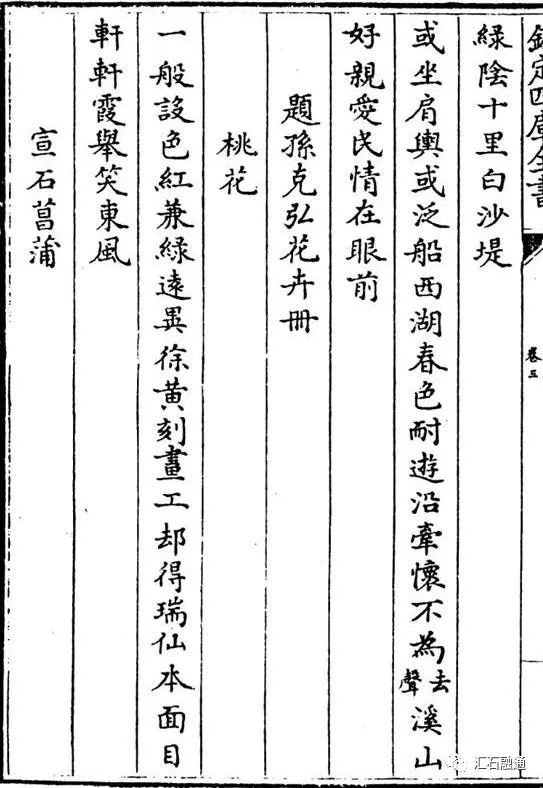 欽定四庫全書
卷三
綠陰十里白沙堤
或坐肩輿或泛船西湖春色耐遊沿牽懷不為去聲溪山
好親愛民情在眼前
題孫克弘花卉冊
桃花
一般設色紅兼綠遠異徐黃刻畫工却得瑞仙本面目
軒軒霞舉笑東風
宣石菖蒲
汇石融通